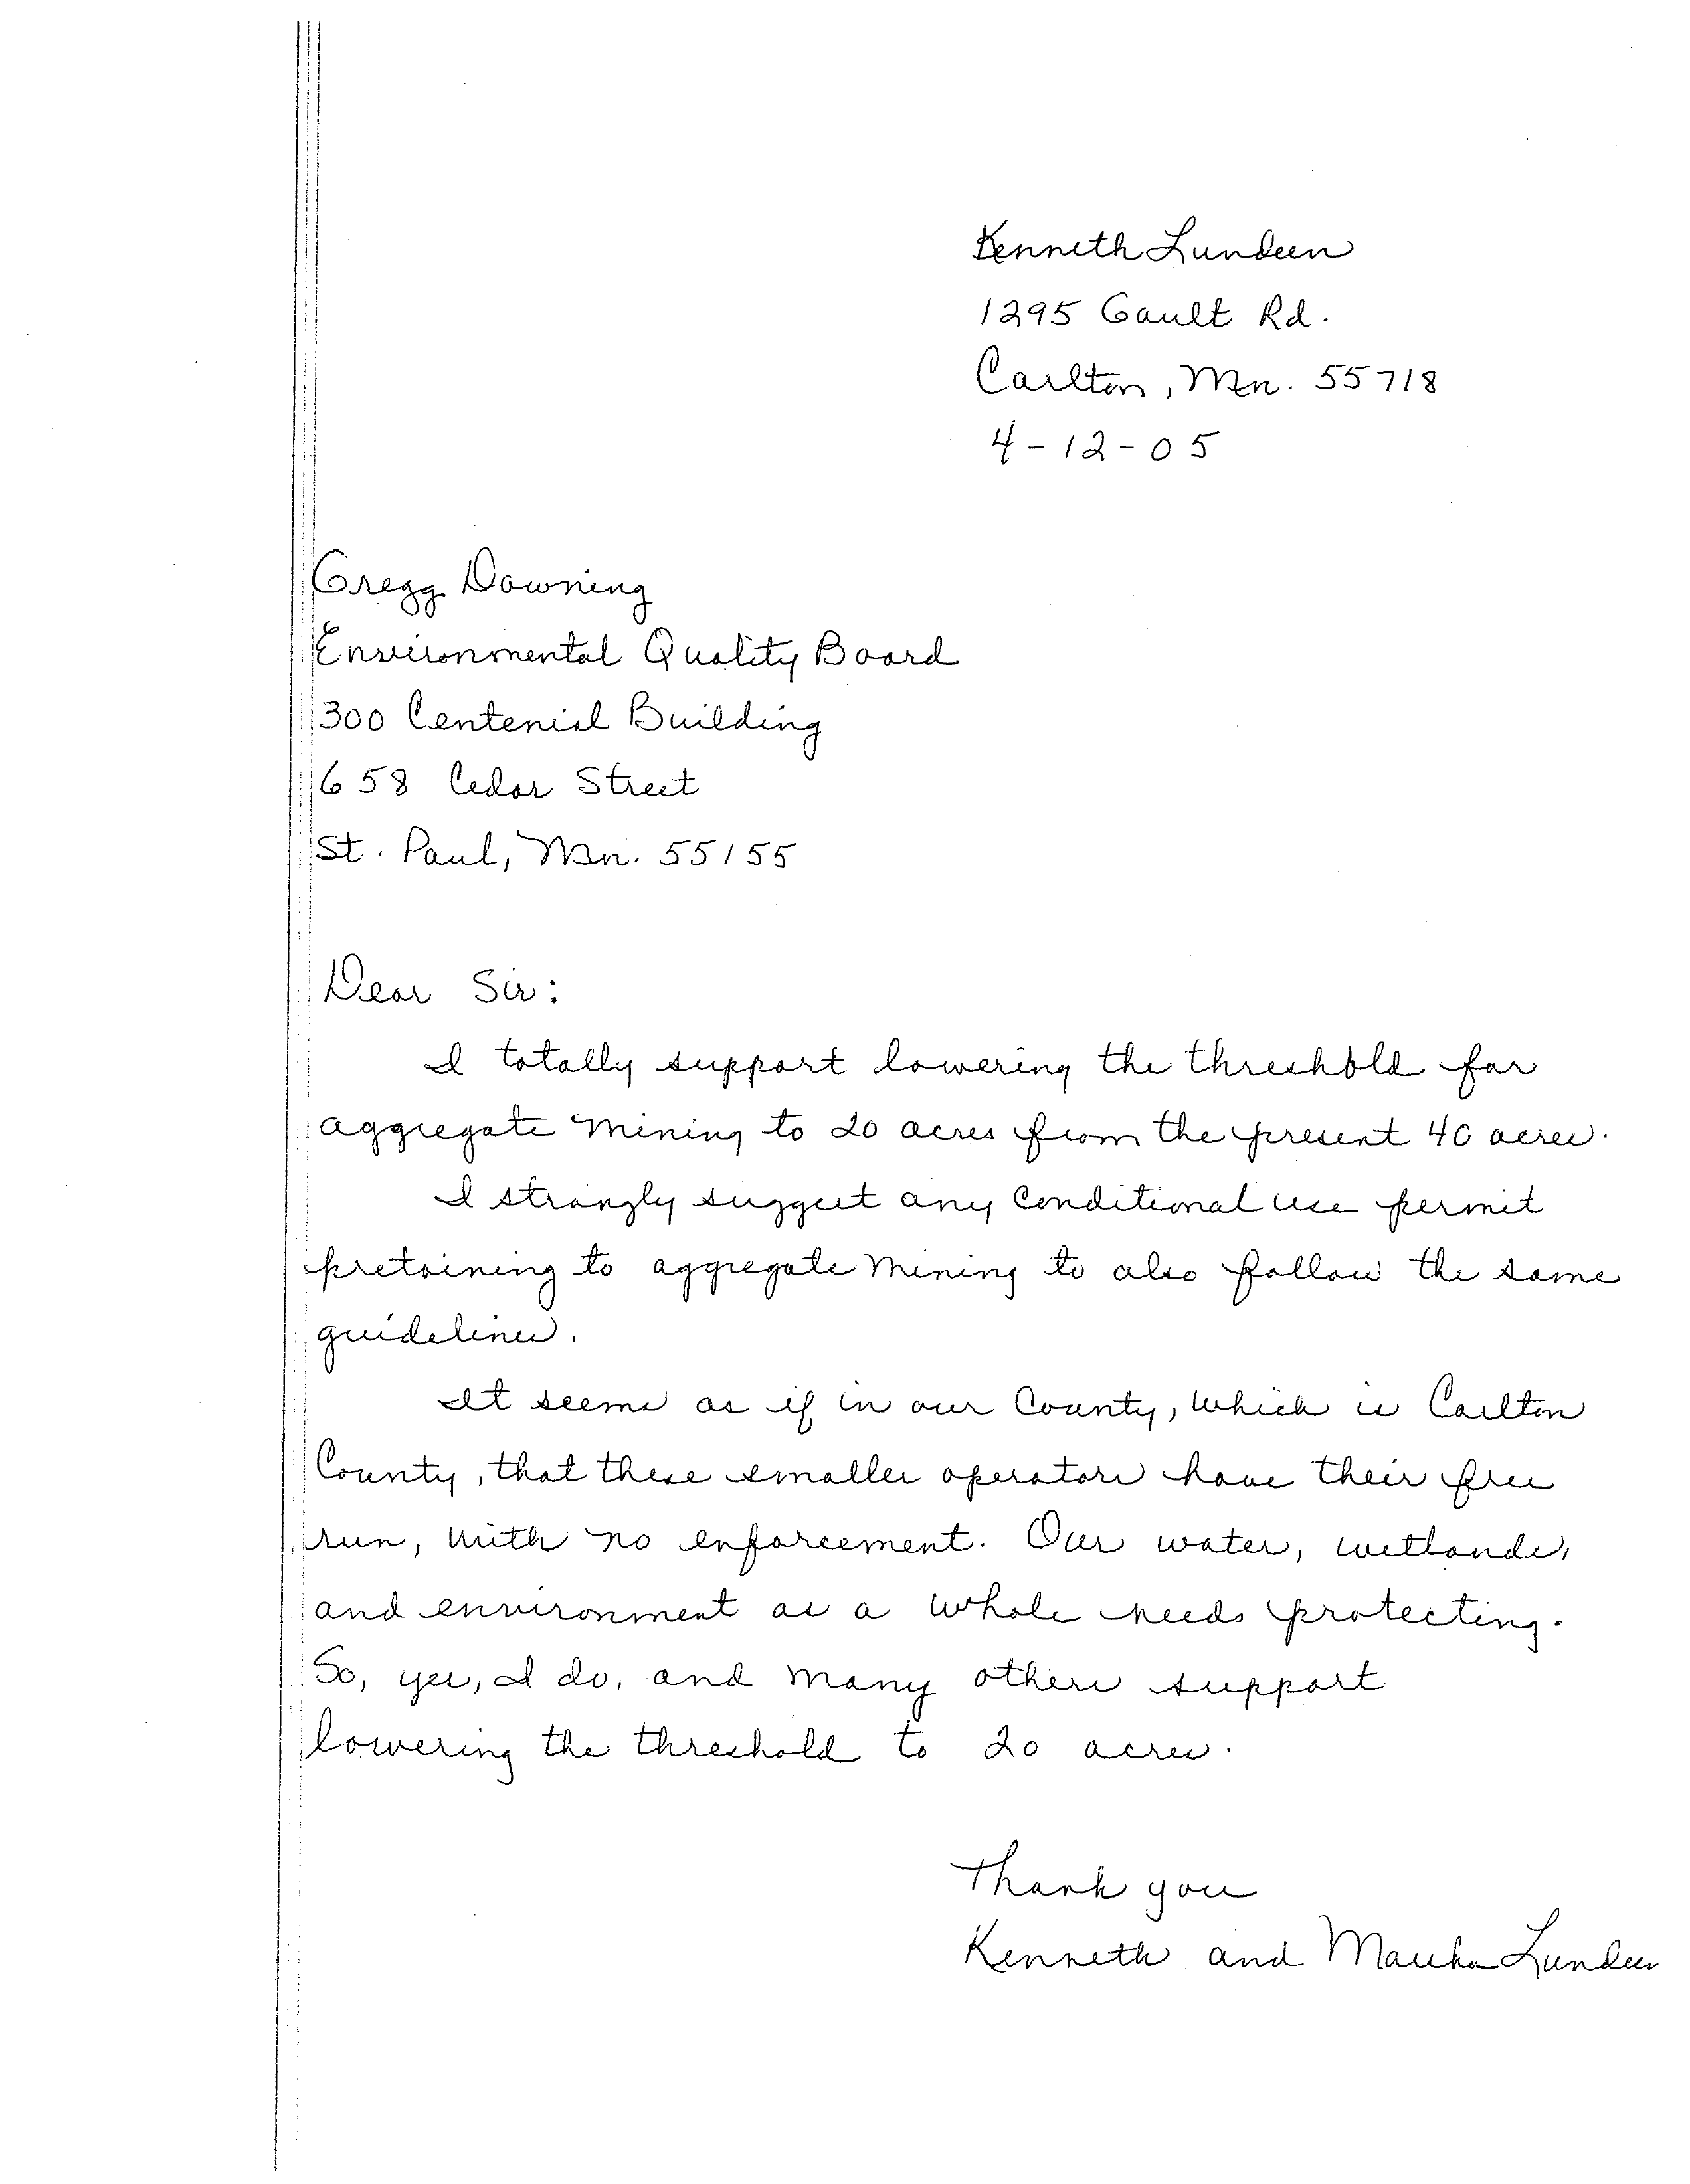 Kenneth Lundeen
1295 Gault Rd.
Carlton, Mn. 55718
4-12-05
Gregg Downing
Environmental Quality Board
300 Centenial Building
658 Cedar Street
St. Paul, Mn. 55155
Dear Sir:
I totally support lowering the threshold for
aggregate mining to 20 acres from the present 40 acres.
I strongly suggest any conditional use permit
pretaining to aggregate mining to also follow the same
guidelines.
It seems as if in our County, which is Carlton
County, that these smaller operators have their free
run, with no enforcement. Our water, wetlands,
and environment as a whole needs protecting.
So, yes, I do, and many others support
lowering the threshold to 20 acres.
Thank you
Kenneth and Lundeen